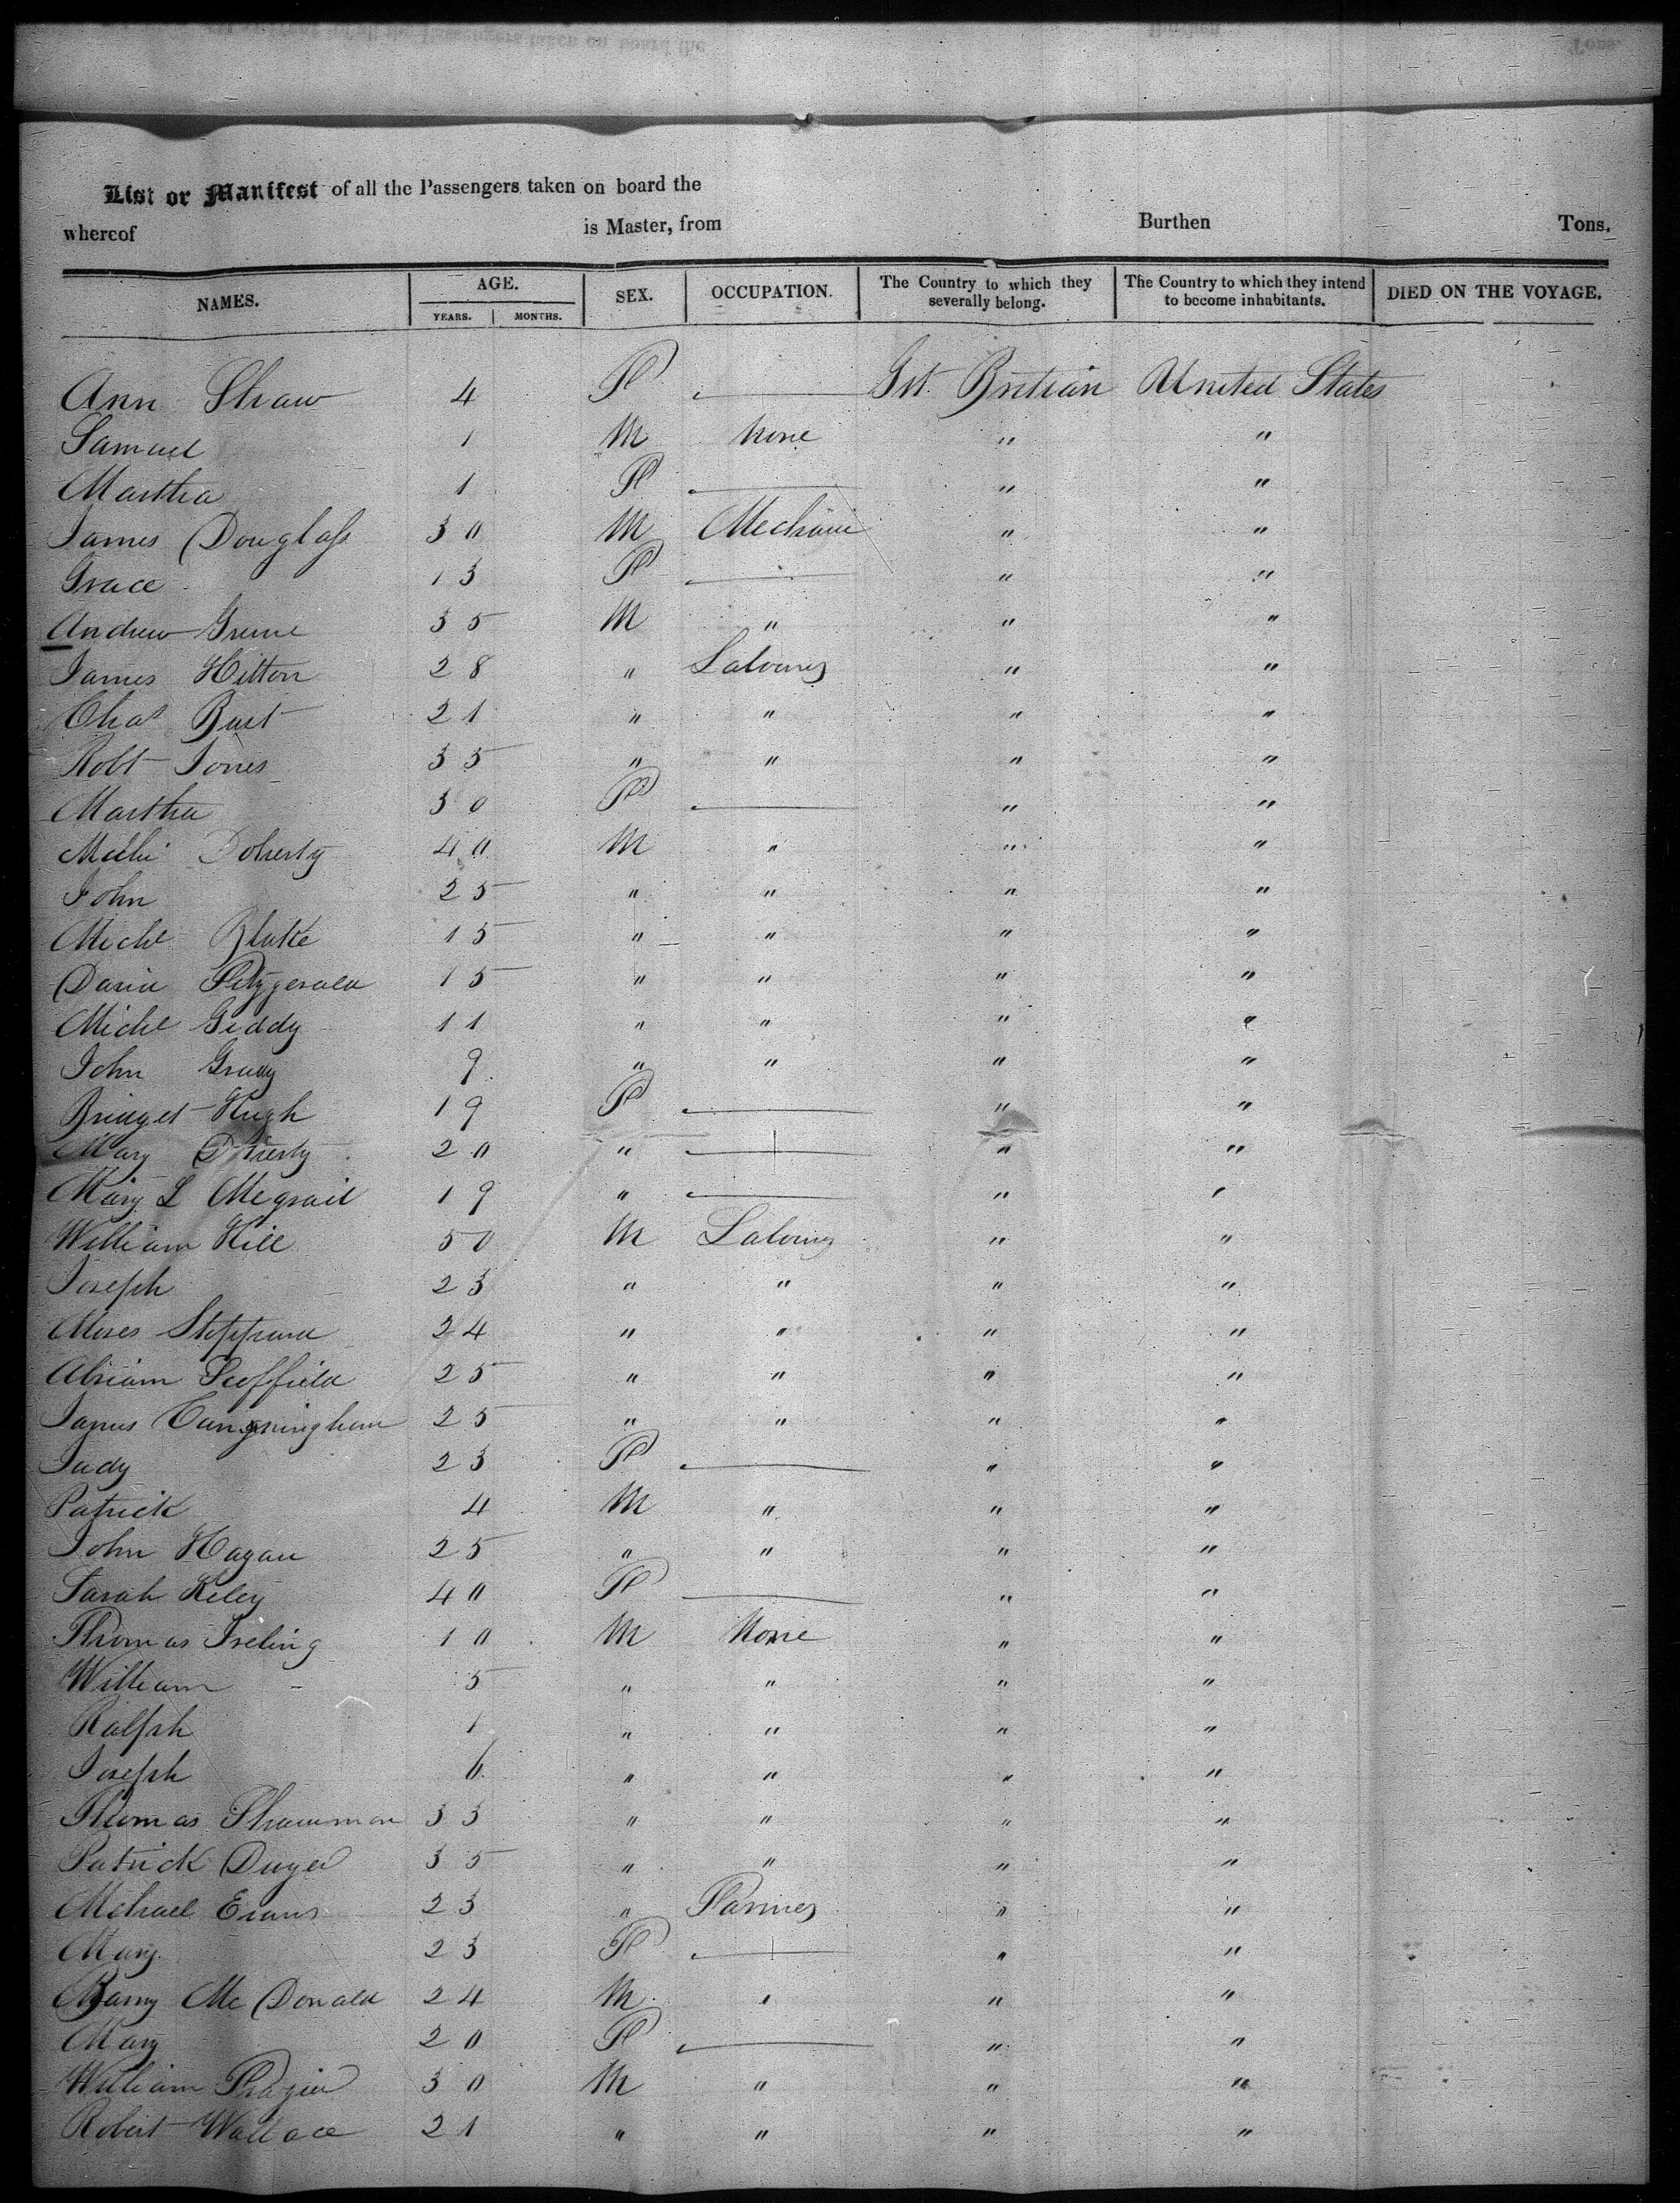 List or Manifest of all the Passengers taken on board the
whereof is Master, from Burthen Tons.
NAMES. AGE. YEARS. MONTHS. SEX. OCCUPATION. The Country to which they severally belong. The Country to which they intend to become inhabitants. DIED ON THE VOYAGE.
Ann Shaw 4 F — Grt. Britian United States
Samuel 1 M None " "
Martha 1 F — " "
James Douglass 30 M Mechanic " "
Grace 13 F — " "
Andrew Greene 35 M " " "
James Hitton 28 " Labourer " "
Chas Burt 21 " " " "
Robt Jones 35 " " " "
Martha 30 F — " "
Doherty 40 M " " "
John 25 " " " "
Michl Blake 15 " " " "
David Fitzgerald 15 " " " "
Michl Geddy 11 " " " "
John Grady 9 " " " "
Bridget Hugh 19 F — " "
Mary Doherty 20 " — " "
Mary L Megrail 19 " — " "
William Hill 50 M Labourer " "
Joseph 23 " " " "
Moses 24 " " " "
Abriam Seffield 25 " " " "
James Cunningham 25 " " " "
Judy 23 F — " "
Patrick 4 M " " "
John Hagan 25 " " " "
Sarah Kiley 40 F — " "
Thomas Freling 10 M None " "
William 5 " " " "
Ralph 1 " " " "
Joseph 6 " " " "
Thomas 33 " " " "
Patrick Dwyer 35 " " " "
Michael Evans 23 " Farmer " "
Mary 23 F — " "
Barny Mc Donald 24 M " " "
Mary 20 F — " "
William Frazier 30 M " " "
Robert Wallace 21 " " " "